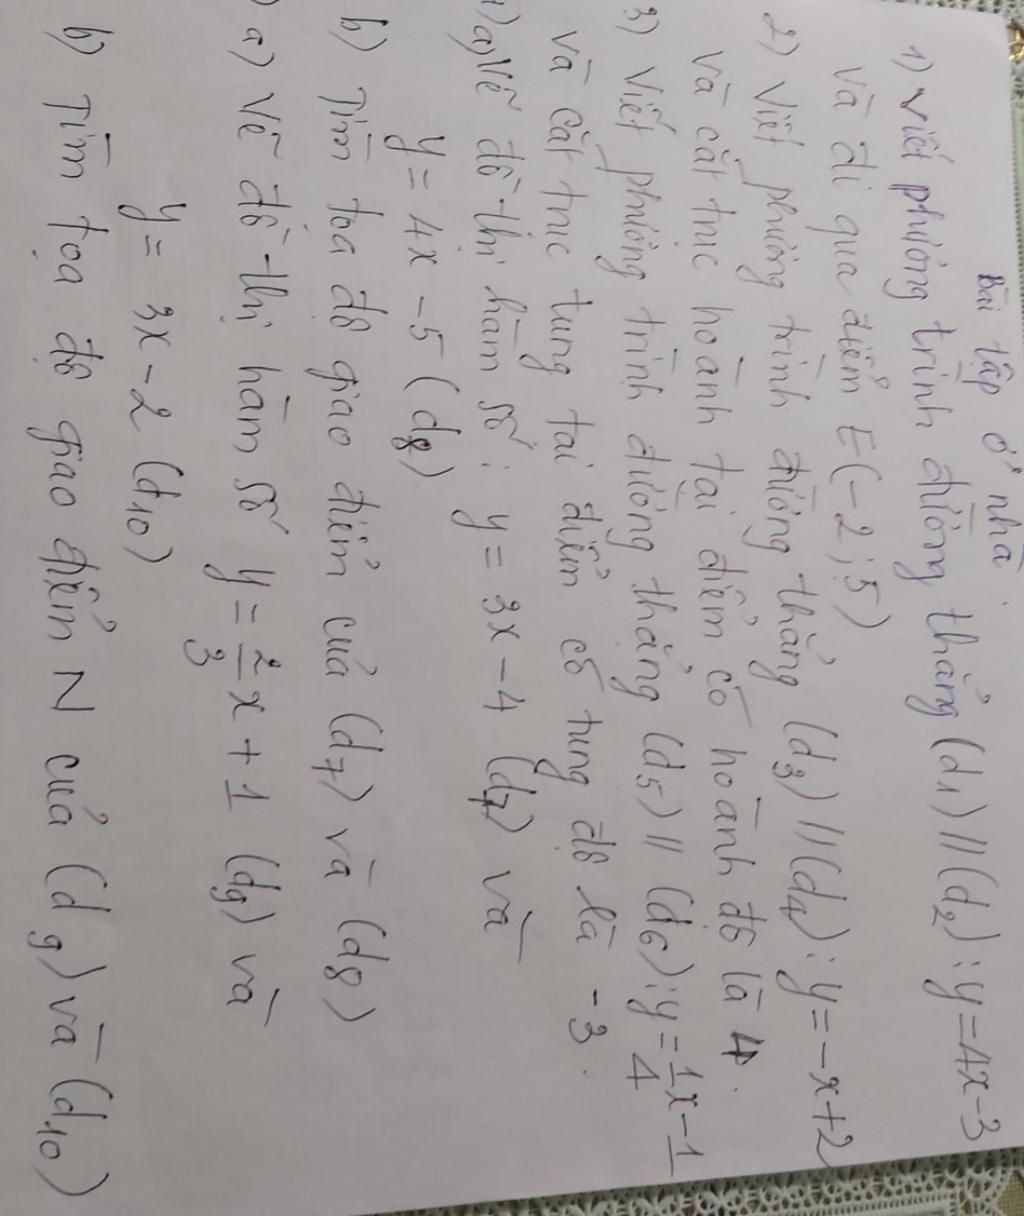 Bài tập ở nhà
1) viết phương trình đường thẳng (d1) // (d2) : y = 4x - 3
và đi qua điểm E(-2 ; 5)
2) viết phương trình đường thẳng (d3) // (d4) : y = -x + 2
và cắt trục hoành tại điểm có hoành độ là 4.
3) viết phương trình đường thẳng (d5) // (d6) : y = 1/4 x - 1
và cắt trục tung tại điểm có tung độ là -3.
4) a) vẽ đồ thị hàm số : y = 3x - 4 (d7) và
y = 4x - 5 (d8)
b) Tìm tọa độ giao điểm của (d7) và (d8)
) a) vẽ đồ thị hàm số y = 2/3 x + 1 (d9) và
y = 3x - 2 (d10)
b) Tìm tọa độ giao điểm N của (d9) và (d10)